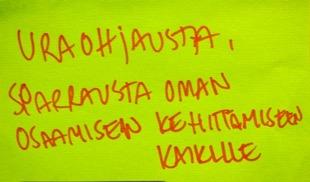 URAOHJAUSTA,
SPARRAUSTA OMAN
OSAAMISEN KEHITTÄMISEEN
KAIKILLE